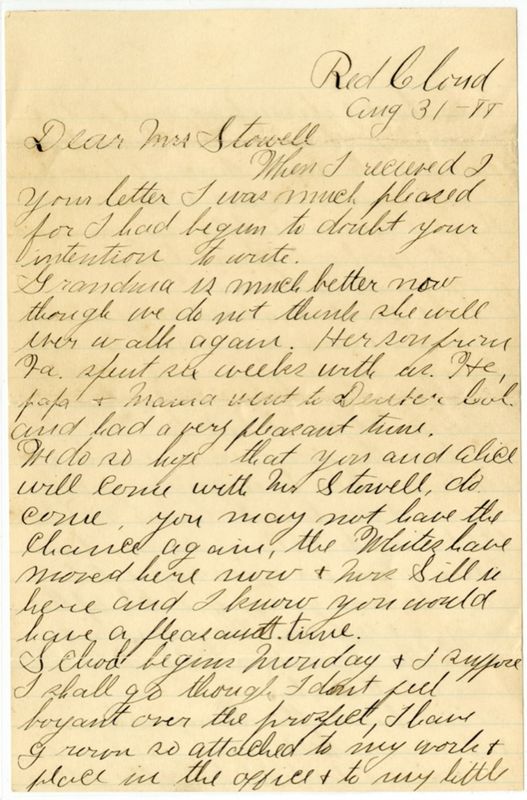 Red Cloud
Aug 31 - 88
Dear Mrs Stowell
When I recieved I
your letter I was much pleased
for I had begun to doubt your
intention to write.
Grandma is much better now
though we do not think she will
ever walk again. Her son from
Va. spent six weeks with us. He,
papa & Mama went to Denver Col.
and had a very pleasant time.
We do so hope that you and Alice
will come with Mr Stowell, do
come, you may not have the
chance again, the Whites have
moved here now & Mrs Sill is
here and I know you would
have a pleasant time.
School begins Monday & I suppose
I shall go though I dont feel
boyant over the prospect, I have
grown so attached to my work &
place in the office & to my little